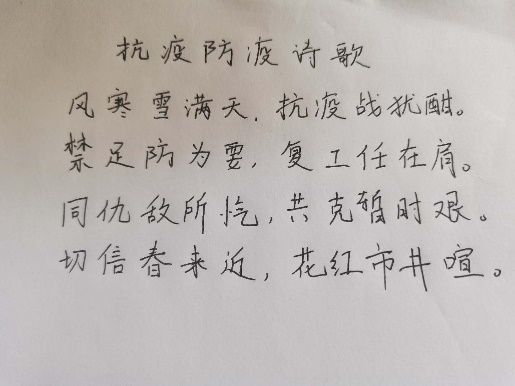 抗疫防疫诗歌
风寒雪满天，抗疫战犹酣。
禁足防为要，复工任在肩。
同仇敌所忾，共克暂时艰。
切信春来近，花红市井喧。